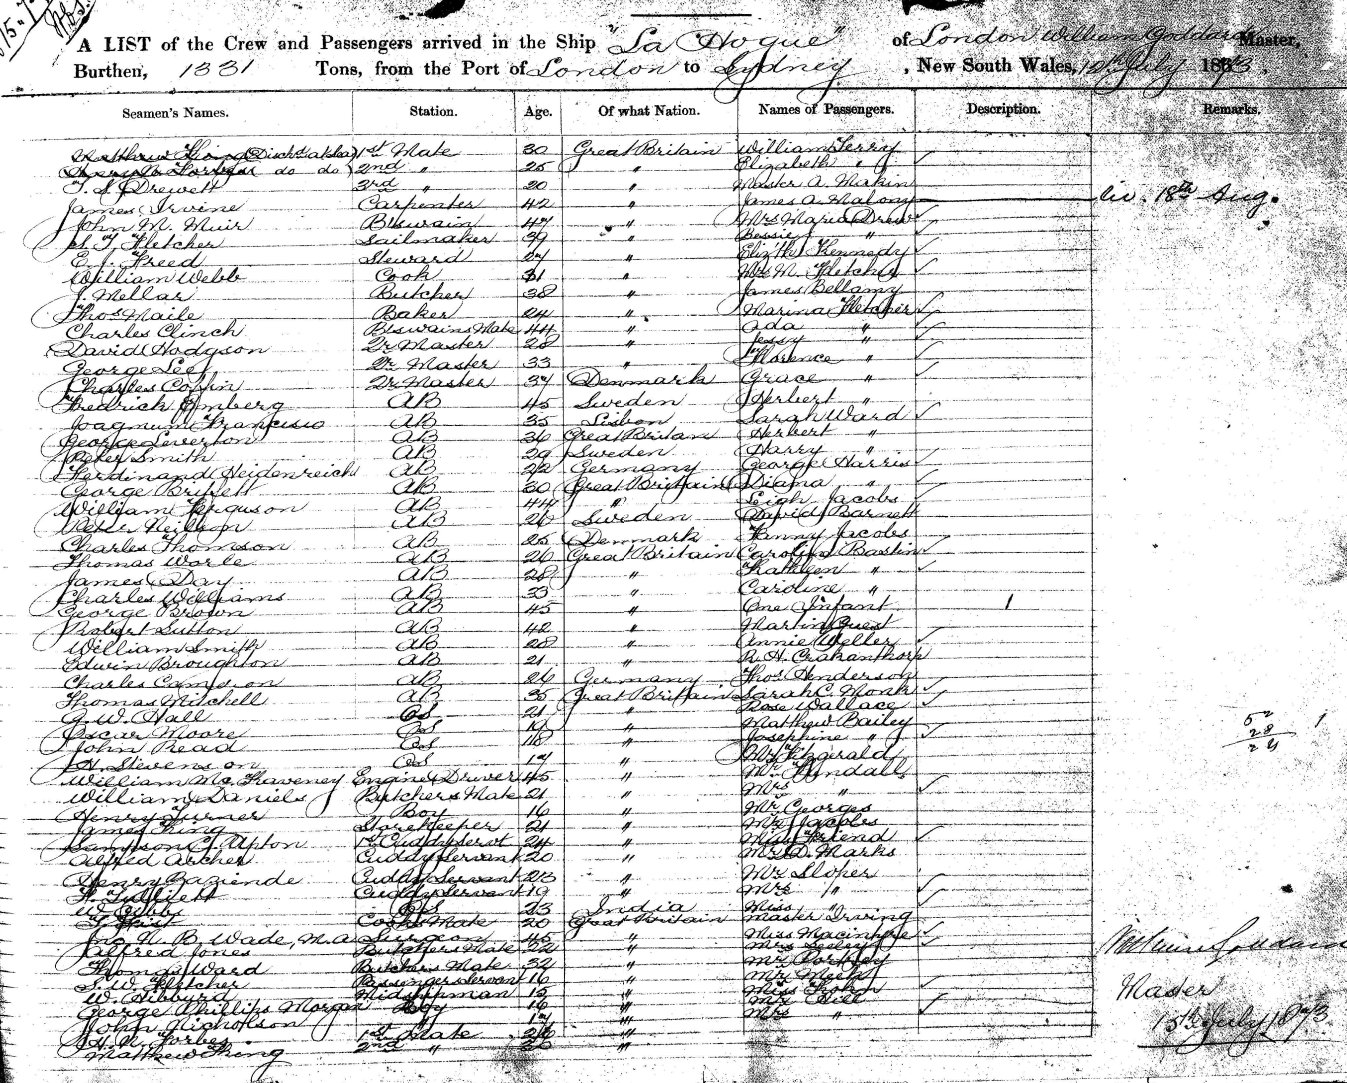 A LIST of the Crew and Passengers arrived in the Ship "La Hogue" of London William Goddard Master,
Burthen, 1331 Tons, from the Port of London to Sydney, New South Wales, July 1873.
Seamen's Names. Station. Age. Of what Nation. Names of Passengers. Description. Remarks.
Matthew King (Dischd at Sea) 1st Mate 30 Great Britain William Terry
Forbes do do 2nd " 25 " Elizabeth "
Drewett 3rd " 20 " Master A. Makin
James Irvine Carpenter 42 " James A. Malony liv. 18th Aug.
John M. Muir Bswain 47 " Mrs Maria Drew
Fletcher Sailmaker 39 " Bessie "
Freed Steward 27 " Elizth Kennedy
William Webb Cook 31 " Mrs M. Fletcher
J. Mellar Butcher 38 " James Bellamy
Thos Maile Baker 24 " Marina Fletcher
Charles Clinch Bswains Mate 44 " Ada "
David Hodgson Qr Master 28 " Jessy "
George Lee Qr Master 33 " Florence "
Charles Coffin Qr Master 37 Denmark Grace "
Fredrich Emberg AB 45 Sweden Herbert "
Joagnum Francisio AB 35 Lisbon Sarah Ward
George Leverton AB 36 Great Britain Herbert "
Peter Smith AB 29 Sweden Harry "
Ferdinand Heidenreich AB 22 Germany George Harris
George AB 30 Great Britain Diana "
William Ferguson AB 44 " Leigh Jacobs
Peter Neilson AB 26 Sweden David Barnett
Charles Thomson AB 25 Denmark Fanny Jacobs
Thomas Worle AB 26 Great Britain Caroline Bastin
James Day AB 28 " Kathleen "
Charles Williams AB 33 " Caroline "
George Brown AB 45 " One Infant 1
Robert Sutton AB 42 " Martin Guest
William Smith AB 28 " Annie Weller
Edwin Broughton AB 21 " R. H. Crakanthorp
Charles Cameron AB 26 Germany Thos Henderson
Thomas Mitchell AB 35 Great Britain Sarah C. Monk
G. W. Hall OS 21 " Rose Wallace
Oscar Moore OS 19 " Matthew Bailey
John Read OS 18 " Josephine "
H. Stevenson OS 17 " Mr Fitzgirald
William Mc Kaveney Engine Driver 45 " Mr Kendall
William Daniels Butchers Mate 21 " Mrs "
Henry Turner Boy 16 " Mr Georges
James King Storekeeper 21 " Mr Jacobs
Sampson G. Upton 1st Cuddy Servt 24 " Miss Friend
Alfred Archer Cuddy Servant 20 " Mr D. Marks
Henry Cuddy Servant 23 " Mr Sloper
Cuddy Servant 19 " Mrs "
W. OS 23 India Miss "
Cooks Mate 20 Great Britain Master Irving
Jno. N. B. Wade, M.A. Surgeon 45 " Miss Macintyre
Alfred Jones Butchers Mate 22 " Mrs
Thomas Ward Butchers Mate 32 " Mr
Fletcher Passengers Servant 16 " Mr Meek
W. Midshipman 15 " Miss
George Phillips Morgan Boy 16 " Mr Hill
John Nicholson " 17 " Mrs "
Forbes 1st Mate 26 "
Matthew King 2nd " 30 "
52 1
28
24
Master
15th July 1873